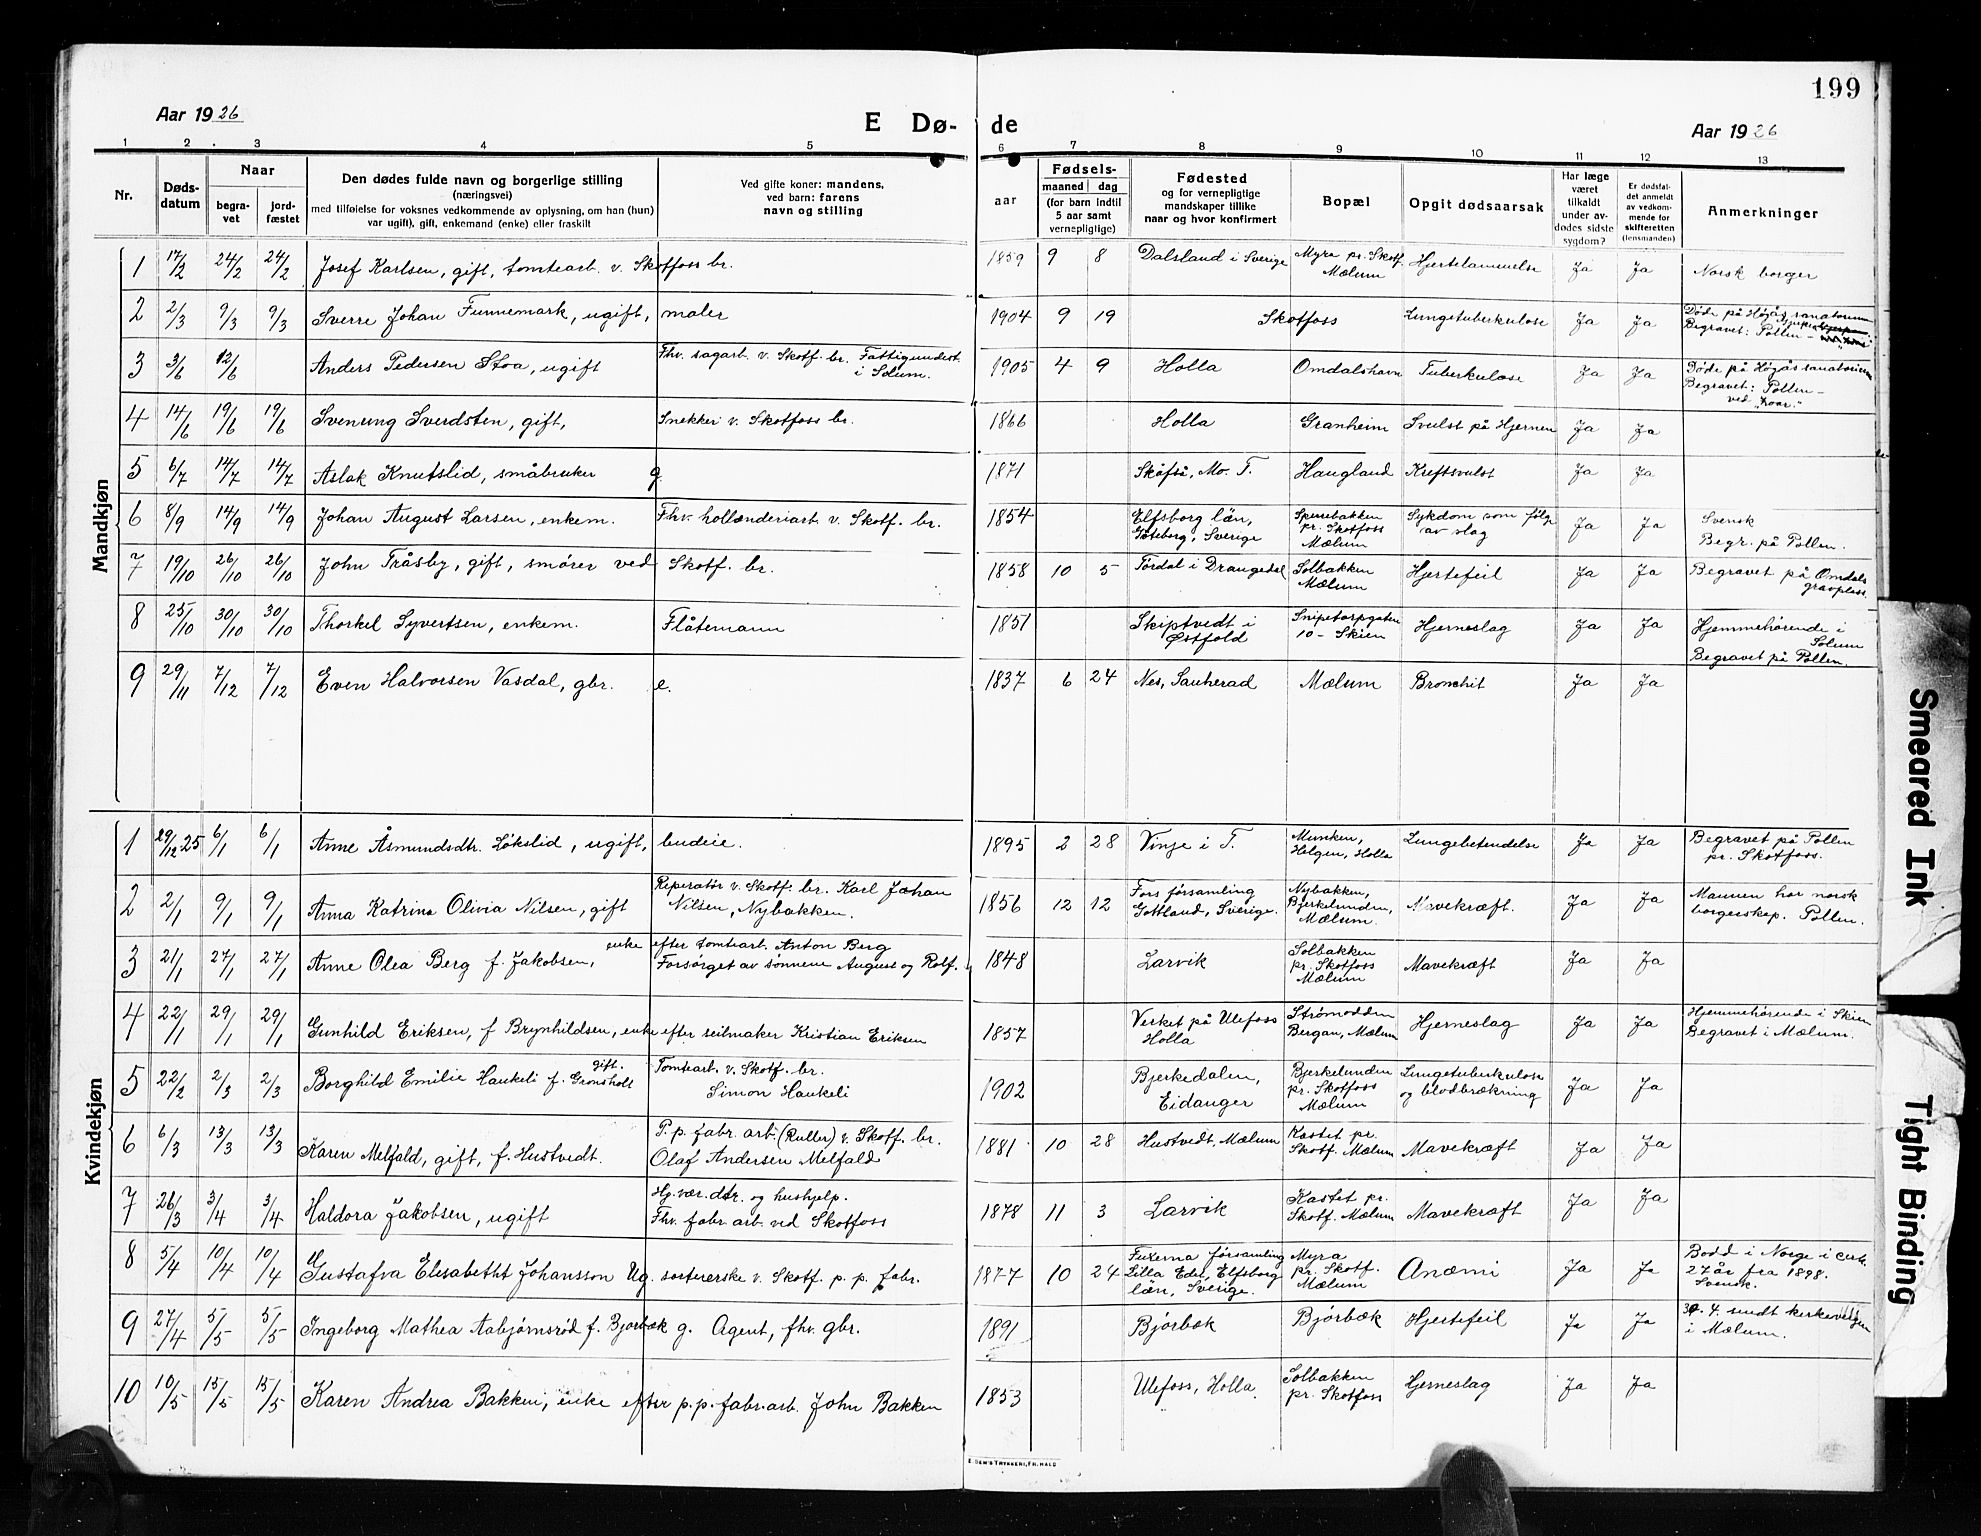 199
Aar 1926
E Dø-
de
Aar 1926
1 2 3 4 5 6 7 8 9 10 11 12 13
Nr.
Døds-
datum
Naar
begra-
vet
jord-
fæstet
Den dødes fulde navn og borgerlige stilling
(næringsvei)
med tilføielse for voksnes vedkommende av oplysning, om han (hun)
var ugift), gift, enkemand (enke) eller fraskilt
Ved gifte koner: mandens,
ved barn: farens
navn og stilling
aar
Fødsels-
maaned dag
(for barn indtil
5 aar samt
vernepligtige)
Fødested
og for vernepligtige
mandskaper tillike
naar og hvor konfirmert
Bopæl
Opgit dødsaarsak
Har læge
været
tilkaldt
under av-
dødes sidste
sygdom?
Er dødsfal-
det anmeldt
av vedkom-
mende for
skifteretten
(lensmanden)
Anmerkninger
Mandkjøn
1 17/2 24/2 24/2 Josef Karlsen, gift, tomtearb. v. Skotfoss br. 1859 9 8 Dalsland i Sverige Myra pr. Skotf. Mælum Hjertelammelse Ja Ja Norsk borger
2 2/3 9/3 9/3 Sverre Johan Funnemark, ugift, maler 1904 9 19 Skotfoss Lungetuberkulose Ja Ja Døde på Högås sanatorium
Begravet: Pollen -
3 3/6 12/6 Anders Pedersen Stoa, ugift Fhv. sagarb. v. Skotf. br. Fattigunderst. i Solum. 1905 4 9 Holla Omdalshavn Tuberkulose Ja Ja Døde på Högås sanatorium
Begravet: Pollen -
4 14/6 19/6 19/6 Svenung Sverdsten, gift, Snekker v. Skotfoss br. 1866 Holla Granheim Svulst på Hjernen Ja Ja
5 6/7 14/7 14/7 Aslak Knutslid, småbruker g. 1871 Skåfså, Mo. T. Haugland Kreftsvulst Ja Ja
6 8/9 14/9 14/9 Johan August Larsen, enkem. Fhv. hollænderiarb. v. Skotf. br. 1854 Elfsborg län, Göteborg, Sverige Spinebakken pr. Skotfoss Mælum Sykdom som følge av slag Ja Ja Svensk
Begr. på Pollen.
7 19/10 26/10 26/10 John Tråsby, gift, smører ved Skotf. br. 1858 10 5 Tördal i Drangedal Solbakken Mælum Hjertefeil Ja Ja Begravet på Omdals
gravplass.
8 25/10 30/10 30/10 Thorkel Syvertsen, enkem. Flåtemann 1851 Skiptvedt i Østfold Snipetorpgaten 10 - Skien Hjerneslag Ja Ja Hjemmehörende i
Solum
Begravet på Pollen.
9 29/11 7/12 7/12 Even Halvorsen Vasdal, gbr. e. 1837 6 24 Nes, Sauherad Mælum Bronchit Ja Ja
Kvindekjøn
1 29/12 25 6/1 6/1 Anne Åsmundsdtr. Lökslid, ugift, budeie. 1895 2 28 Vinje i T. Munken, Helgen, Holla Lungebetendelse Ja Ja Begravet på Pollen
pr. Skotfoss.
2 2/1 9/1 9/1 Anna Katrina Olivia Nilsen, gift Reperatör v. Skotf. br. Karl Johan Nilsen, Nybakken. 1856 12 12 Fors församling Gottland, Sverige. Nybakken, Bjerkelunden, Mælum. Mavekræft. Ja Ja Mannen har norsk
borgerskap. Pollen.
3 21/1 27/1 27/1 Anne Olea Berg f. Jakobsen, enke efter tomtearb. Anton Berg
Forsörget av sönnene August og Rolf. 1848 Larvik Solbakken pr. Skotfoss Mælum Mavekræft Ja Ja
4 22/1 29/1 29/1 Gunhild Eriksen, f. Brynhildsen, enke efter seilmaker Kristian Eriksen 1857 Verket på Ulefoss Holla Strömodden Bergan, Mælum Hjerneslag Ja Ja Hjemmehörende i Skien
Begravet i Mælum.
5 22/2 2/3 2/3 Borghild Emilie Haukeli f. Gronsholt gift. Tomtearb. v. Skotf. br.
Simon Haukeli 1902 Bjerkedalen, Eidanger Bjerkelunden pr. Skotfoss Mælum Lungetuberkulose og blodbrækning Ja Ja
6 6/3 13/3 13/3 Karen Melfald, gift, f. Hustvedt. P. p. fabr. arb. (Ruller) v. Skotf. br.
Olaf Andersen Melfald 1881 10 28 Hustvedt, Mælum Kastet pr. Skotf. Mælum Mavekræft Ja Ja
7 26/3 3/4 3/4 Haldora Jakobsen, ugift Hj. vær. dtr. og hushjelp.
Fhv. fabr. arb. ved Skotfoss 1878 11 3 Larvik Kastet pr. Skotf. Mælum Mavekræft Ja Ja
8 5/4 10/4 10/4 Gustafva Elisabetht Johansson Ug. sortererske v. Skotf. p. p. fabr. 1877 10 24 Fuxerna församling Lilla Edet, Elfsborg län, Sverige. Myra pr. Skotf. Mælum Anæmi Ja Ja Bodd i Norge i cirk.
27 år fra 1898.
Svensk.
9 27/4 5/5 5/5 Ingeborg Mathea Aabjørnsrød f. Bjorbæk g. Agent, fhv. gbr. 1891 Bjørbæk Bjørbæk Hjertefeil Ja Ja 30. 4. sendt kirkevergen
i Mælum.
10 10/5 15/5 15/5 Karen Andrea Bakken, enke efter p. p. fabr. arb. John Bakken 1853 Ulefoss, Holla. Solbakken pr. Skotfoss Hjerneslag Ja Ja
E. SEM'S TRYKKERI, FR.HALD
Smeared Ink
Tight Binding